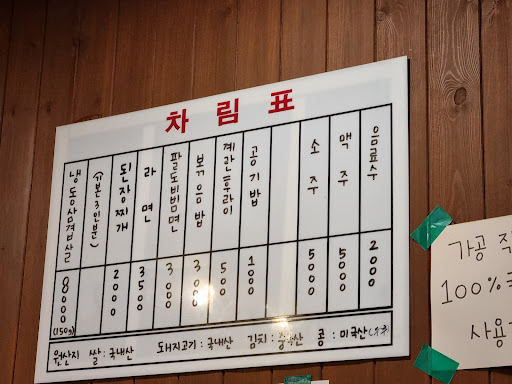 차림표
냉동삼겹살 8000 (150g)
(기본3인분)
된장찌개 2000
라면 3500
팔도비빔면 3000
볶음밥 3000
계란후라이 500
공기밥 1000
소주 5000
맥주 5000
음료수 2000
원산지 쌀:국내산 돼지고기:국내산 김치:중국산 콩:미국산
가공 직
100%국
사용